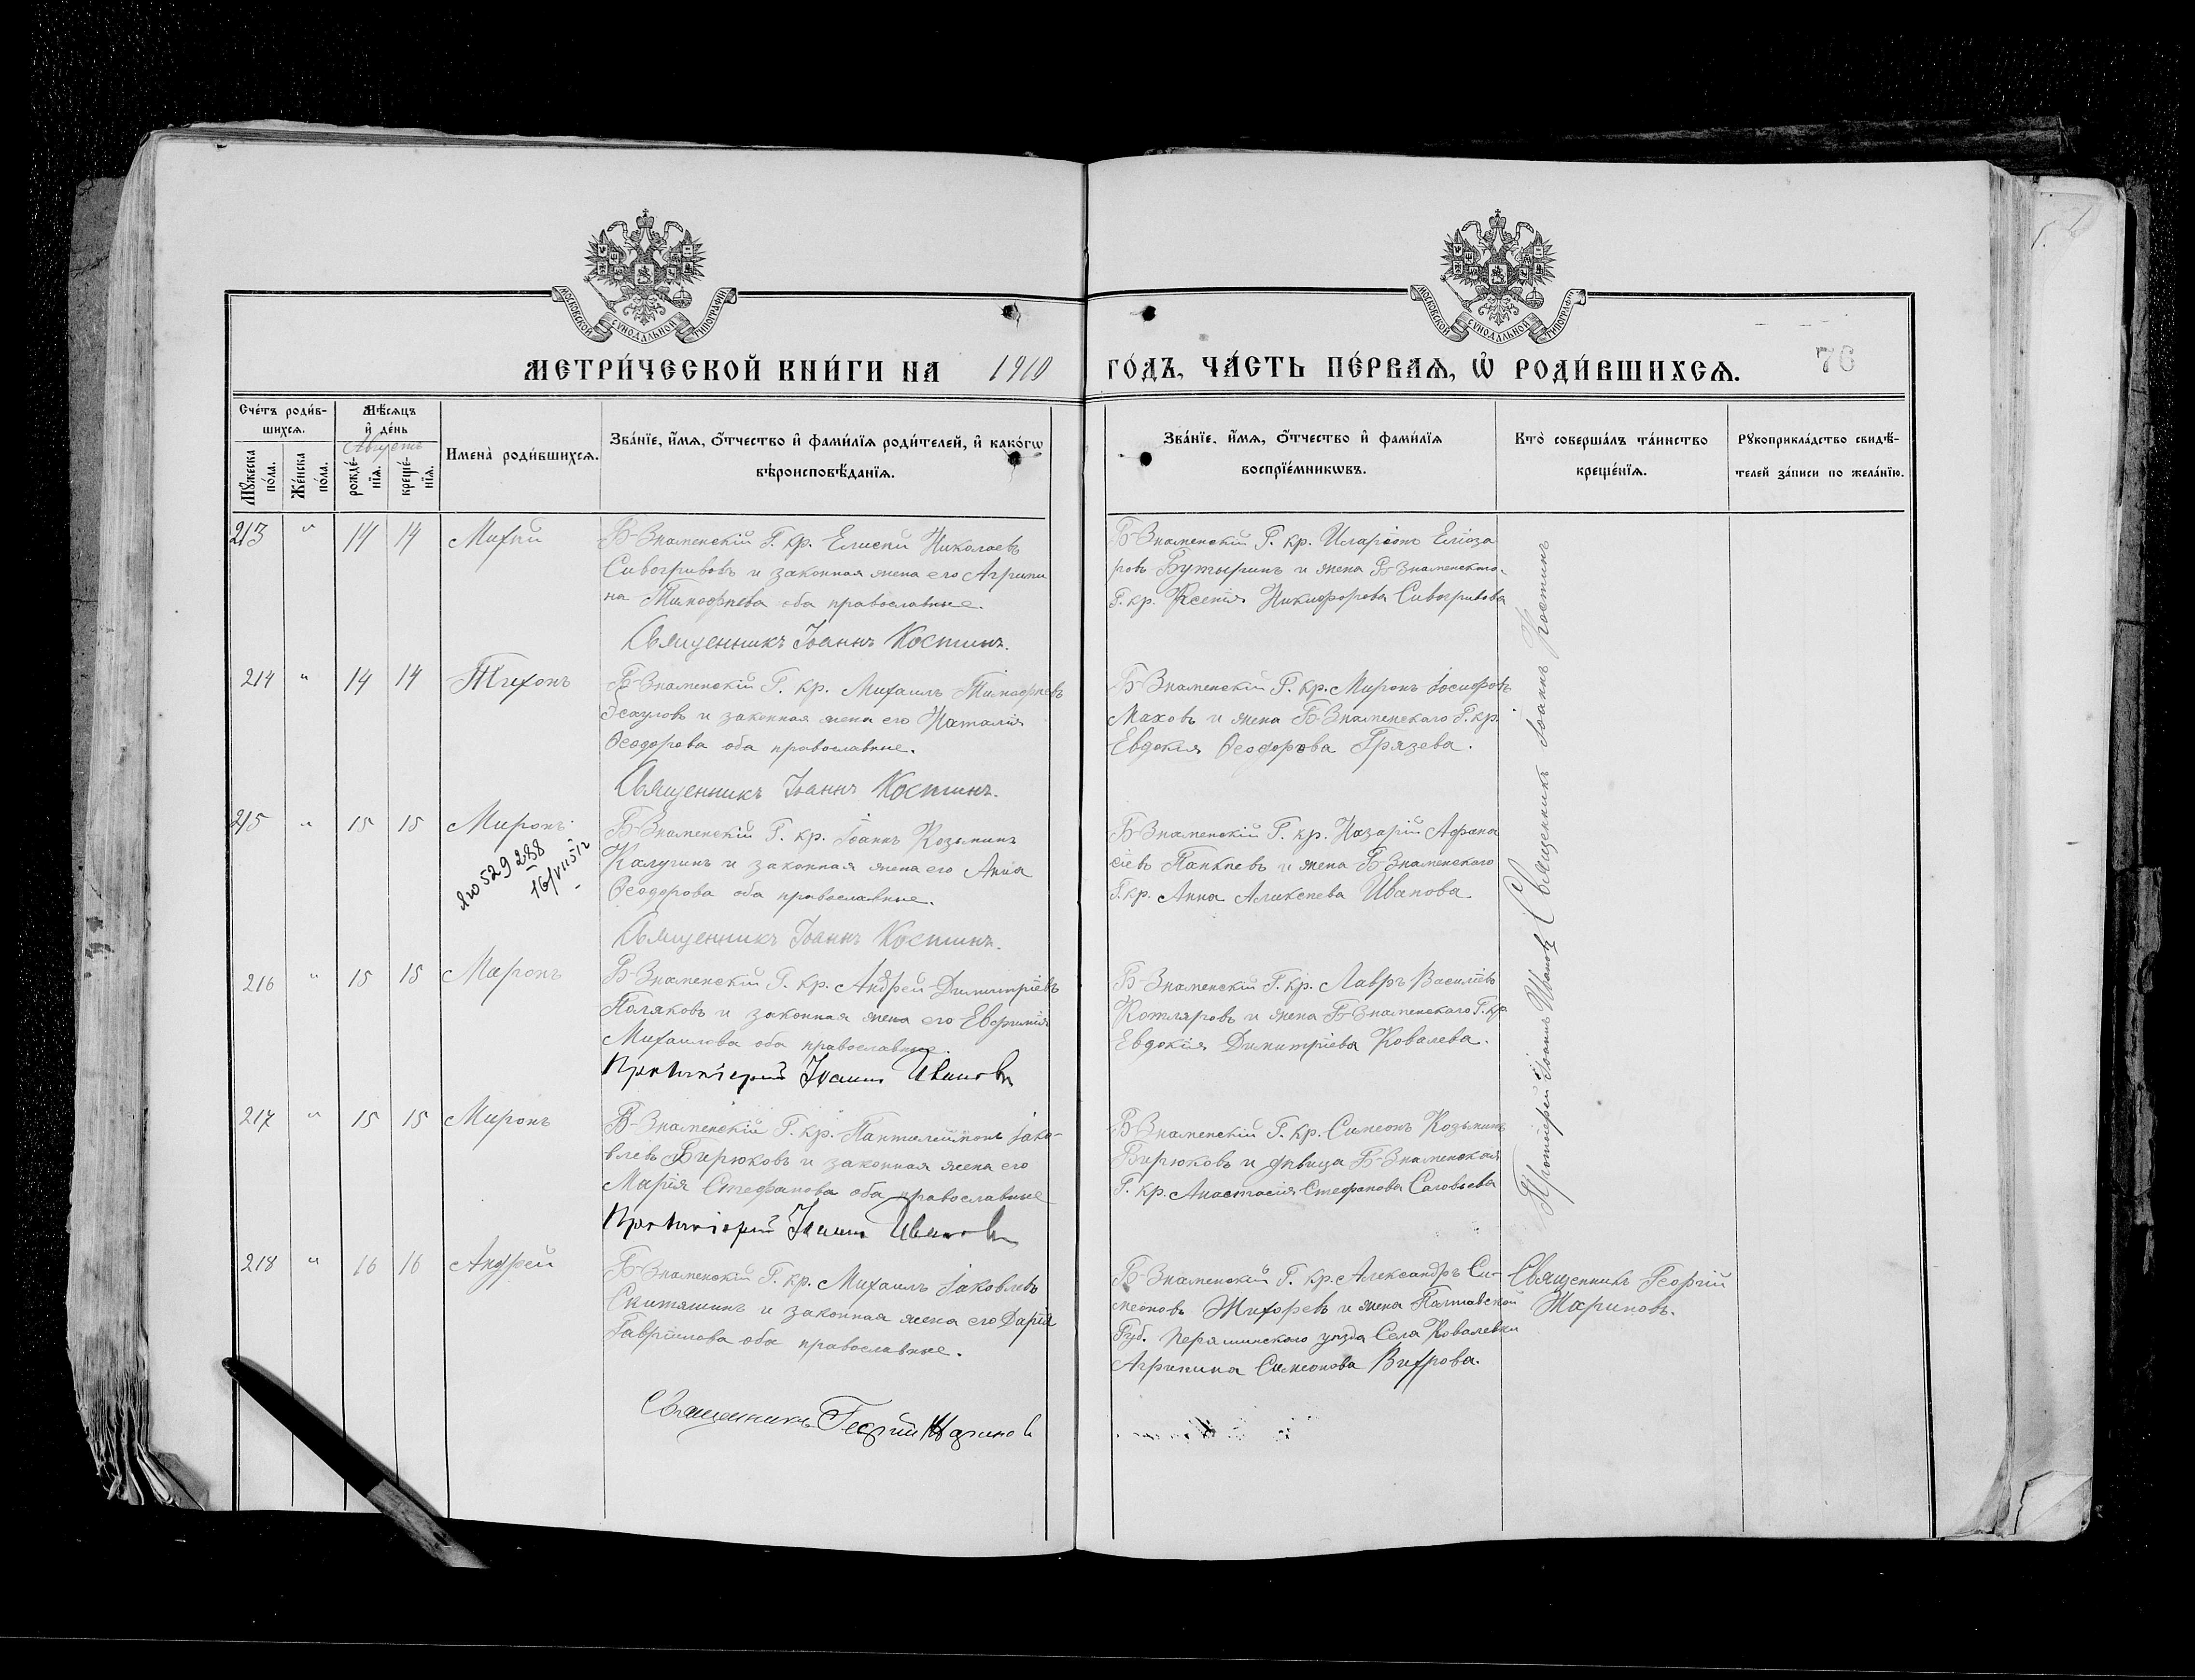 МОСКОВСКОЙ СѴНОДАЛЬНОЙ ТИПОГРАФІИ
МОСКОВСКОЙ СѴНОДАЛЬНОЙ ТИПОГРАФІИ
МЕТРИ́ЧЕСКОЙ КНИ́ГИ НА 1910 ГО́ДЪ, ЧА́СТЬ ПЕ́РВАѦ, Ѽ РОДИ́ВШИХСѦ.
76
Сче́тъ роди́в-
шихсѧ.
Мѣ́сѧцъ
и҆ де́нь
Августъ
Мꙋ́жеска по́ла.
Же́нска по́ла.
рожде́-нїѧ.
креще́-нїѧ.
Имена̀ роди́вшихсѧ.
Зва́нїе, и҆́мѧ, ѻ҆́тчество и҆ фами́лїѧ роди́телей, и҆ како́гѡ
вѣроисповѣ́данїѧ.
Зва́нїе, и҆́мѧ, ѻ҆́тчество и҆ фами́лїѧ
воспрїе́мникѡвъ.
Кто̀ соверша́лъ та́инство
креще́нїѧ.
Рꙋкоприкла́дство свидѣ́-
телей за́писи по жела́нїю.
213 " 14 14 Михей
Б-Знаменскій Г. кр. Елисей Николаевъ
Сивогривовъ и законная жена его Агрипи
на Тимофѣева оба православные.
Священникъ Іоаннъ Костинъ.
Б-Знаменскій Г. кр. Иларіонъ Еліоза
ровъ Бутыринъ и жена Б-Знаменскаго
Г. кр. Ксенія Никифорова Сивогривова
214 " 14 14 Тихонъ
Б-Знаменскій Г. кр. Михаилъ Тимофѣевъ
Эсауловъ и законная жена его Наталія
Ѳеодорова оба православные.
Священникъ Іоаннъ Костинъ.
Б-Знаменскій Г. кр. Миронъ Іосифовъ
Маховъ и жена Б-Знаменскаго Г. кр.
Евдокія Ѳеодорова Грязева.
215 " 15 15 Миронъ
529288
Б-Знаменскій Г. кр. Іоаннъ Козьминъ
Калугинъ и законная жена его Анна
Ѳеодорова оба православные.
Священникъ Іоаннъ Костинъ.
Б-Знаменскій Г. кр. Назарій Афана
сіевъ Панкѣевъ и жена Б-Знаменскаго
Г. кр. Анна Алексѣева Иванова
216 " 15 15 Миронъ
Б-Знаменскій Г. кр. Андрей Димитріевъ
Поляковъ и законная жена его Евфимія
Михаилова оба православные.
Протоіерей Іоаннъ Ивановъ
Б-Знаменскій Г. кр. Лавръ Василіевъ
Котляровъ и жена Б-Знаменскаго Г. кр.
Евдокія Димитріева Ковалева.
217 " 15 15 Миронъ
Б-Знаменскій Г. кр. Пантелеймонъ Іако-
влевъ Бирюковъ и законная жена его
Марія Стефанова оба православные
Протоіерей Іоаннъ Ивановъ
Б-Знаменскій Г. кр. Симеонъ Козьминъ
Бирюковъ и дѣвица Б-Знаменская
Г. кр. Анастасія Стефанова Саловьева
Священникъ Іоаннъ Костинъ
Протоіерей Іоаннъ Ивановъ
218 " 16 16 Андрей
Б-Знаменскій Г. кр. Михаилъ Іаковлевъ
и законная жена его Дарія
Гавріилова оба православные.
Священникъ Георгій Жариновъ
Б-Знаменскій Г. кр. Александръ Си-
меоновъ Жихоревъ и жена Полтавской
Губ. уѣзда Села Ковалевки
Агрипина Симеонова Вихрова.
Священникъ Георгій
Жариновъ.